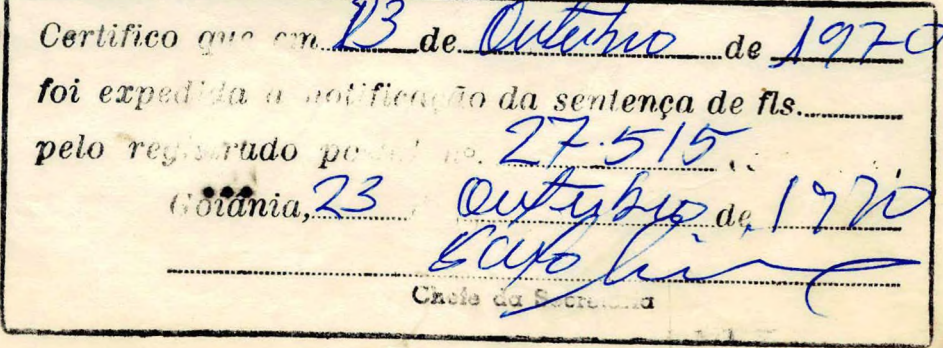 Certifico que em 23 de Outubro de 1970
foi expedida a notificação da sentença de fls.
pelo registrado postal nº. 27.515.
Goiânia, 23 Outubro de 1970
Chefe da Secretaria